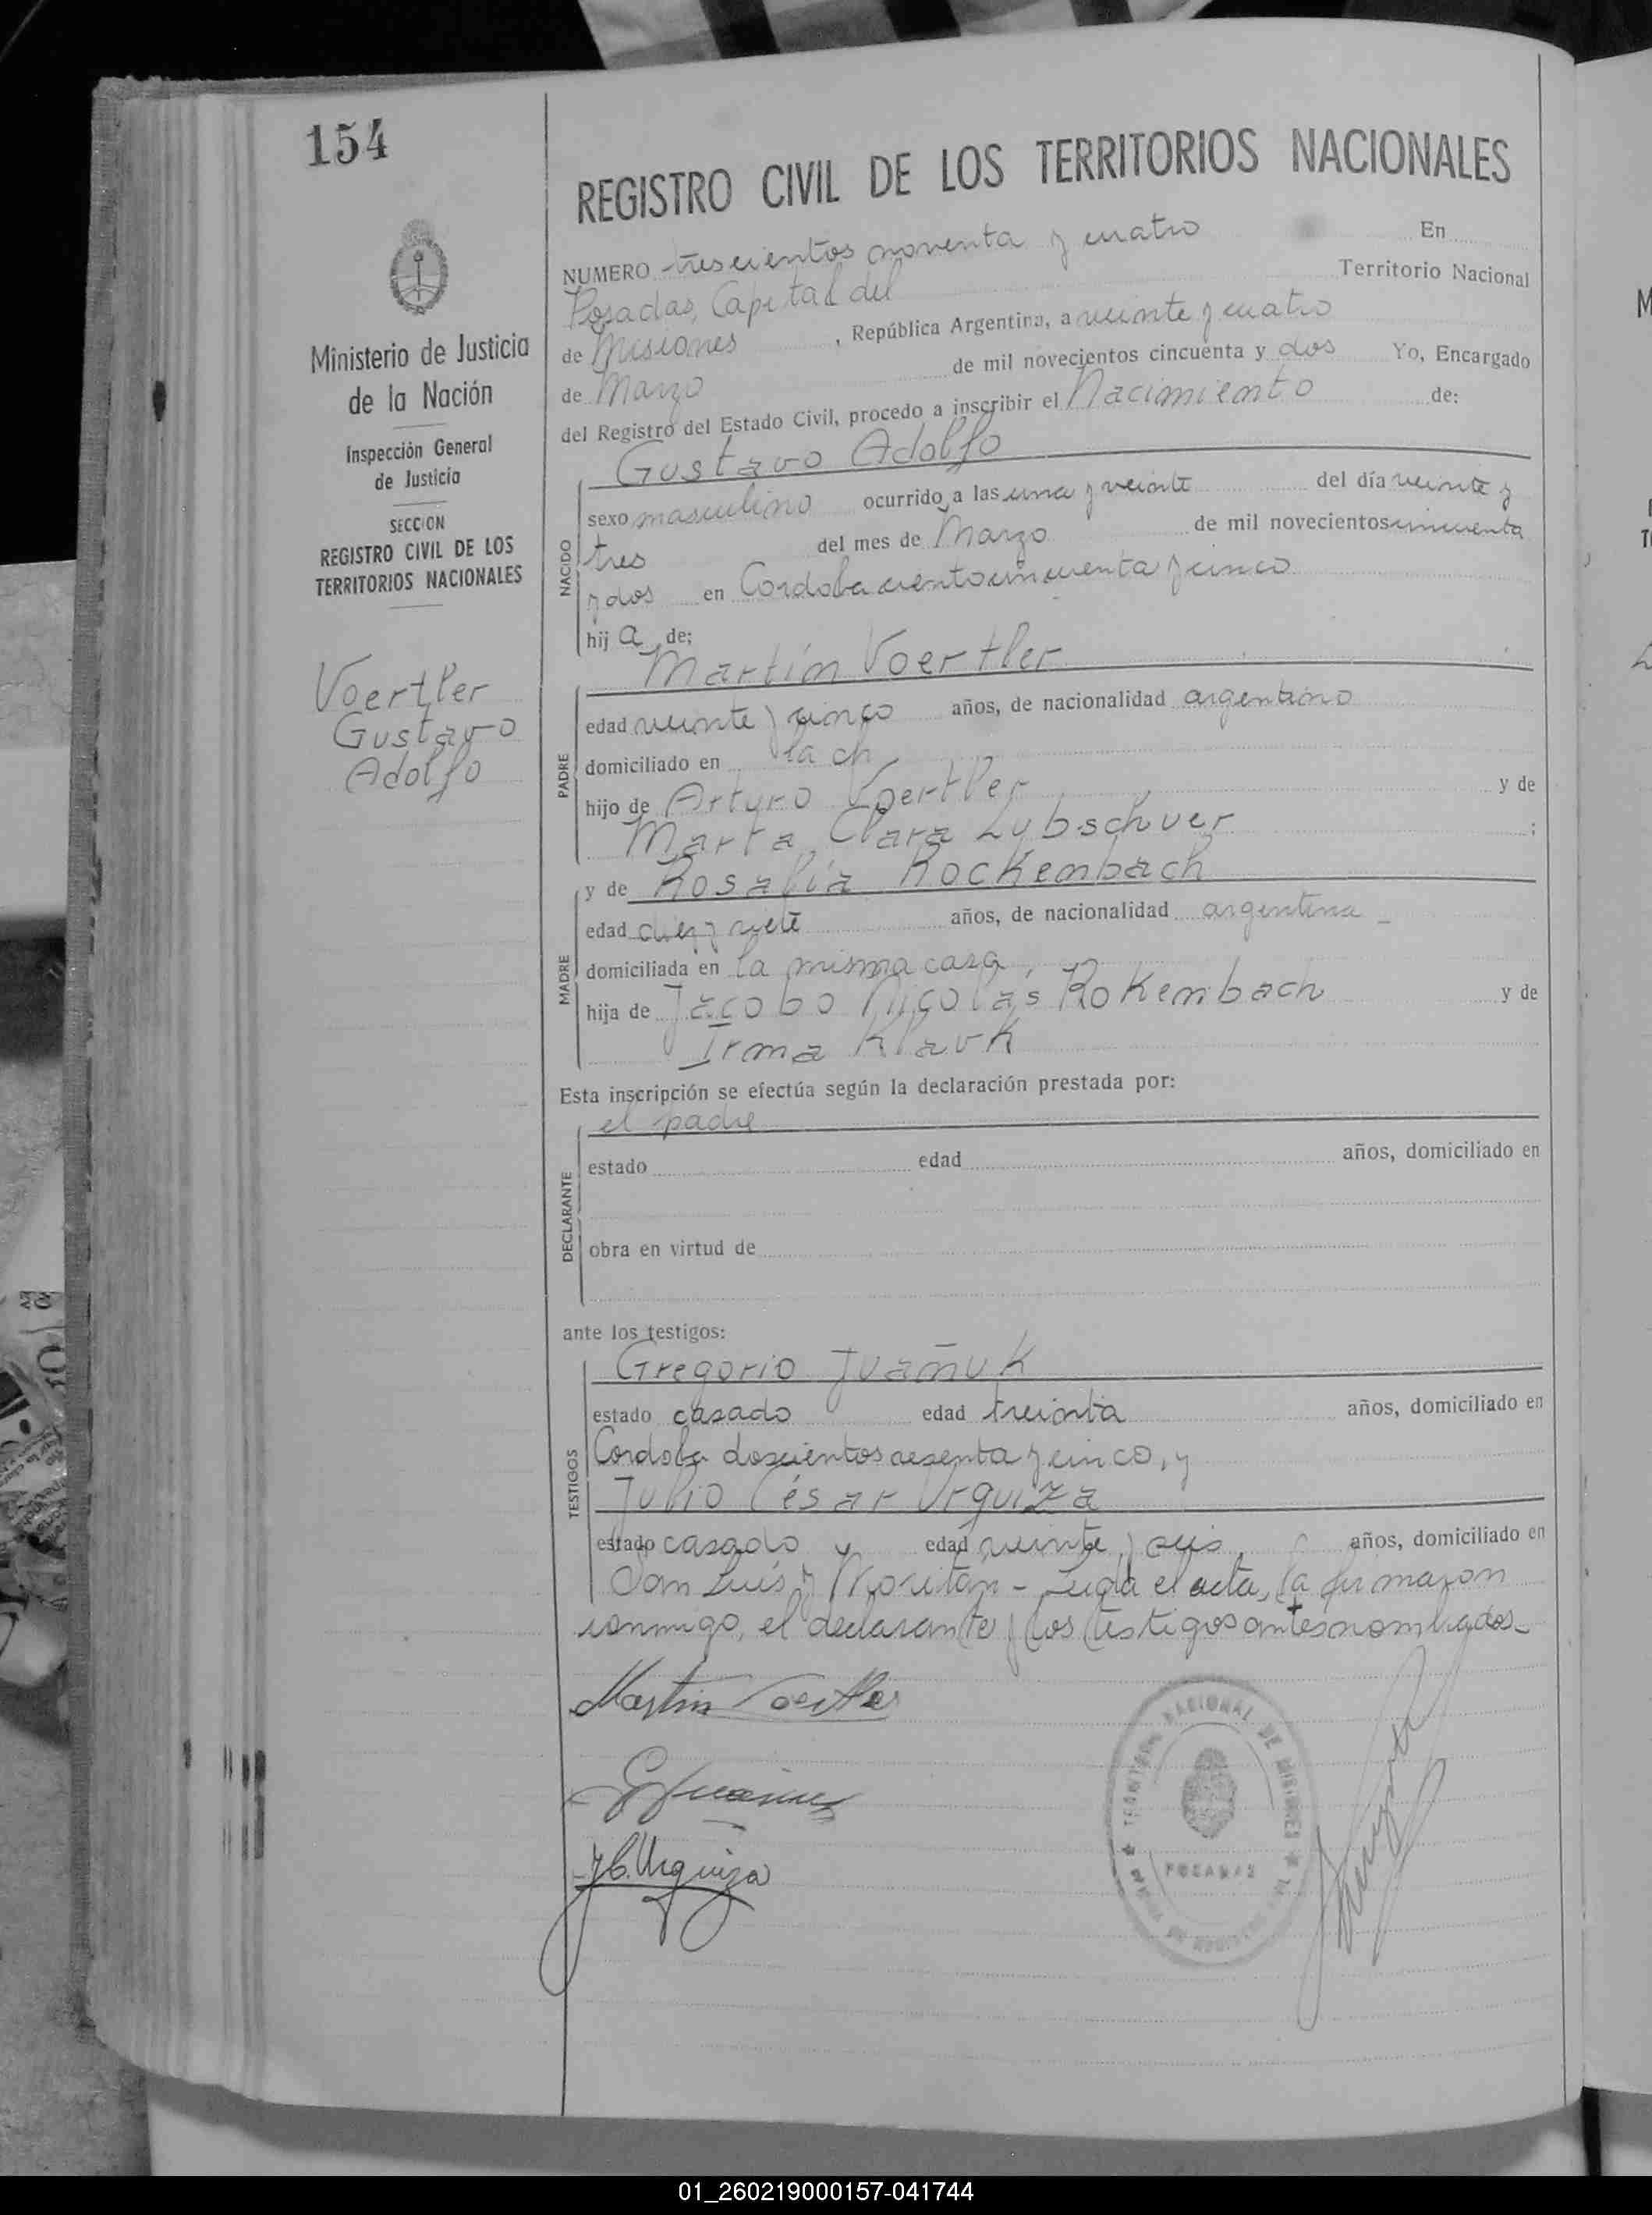 154
Ministerio de Justicia
de la Nación
Inspección General
de Justicia
SECCION
REGISTRO CIVIL DE LOS
TERRITORIOS NACIONALES
Voertler
Gustavo
Adolfo
REGISTRO CIVIL DE LOS TERRITORIOS NACIONALES
NUMERO trescientos noventa y cuatro En
Posadas, Capital del Territorio Nacional
de Misiones, República Argentina, a veinte y cuatro
de Marzo de mil novecientos cincuenta y dos Yo, Encargado
del Registro del Estado Civil, procedo a inscribir el Nacimiento de:
Gustavo Adolfo
NACIDO
sexo masculino ocurrido a las una y veinte del día veinte y
tres del mes de Marzo de mil novecientos cincuenta
y dos en Cordoba ciento cincuenta y cinco
hij a de:
Martín Voertler
PADRE
edad veinte y cinco años, de nacionalidad argentino
domiciliado en la ch
hijo de Arturo Voertler y de
Marta Clara Lubschver ;
y de Rosalia Rockembach
MADRE
edad diez y siete años, de nacionalidad argentina
domiciliada en la misma casa,
hija de Jacobo Nicolás Rokembach y de
Irma Klauk
Esta inscripción se efectúa según la declaración prestada por:
el padre
DECLARANTE
estado edad años, domiciliado en
obra en virtud de
ante los testigos:
Gregorio Juañuk
TESTIGOS
estado casado edad treinta años, domiciliado en
Cordoba doscientos sesenta y cinco, y
Julio César Urquiza
estado casado y edad veinte y seis, años, domiciliado en
San Luis y Moritán - Leida el acta, la firmaron
conmigo, el declarante y los testigos antes nombrados-
Martin Voertler
J.C. Urquiza
TERRITORIO NACIONAL DE MISIONES
POSADAS
01_260219000157-041744